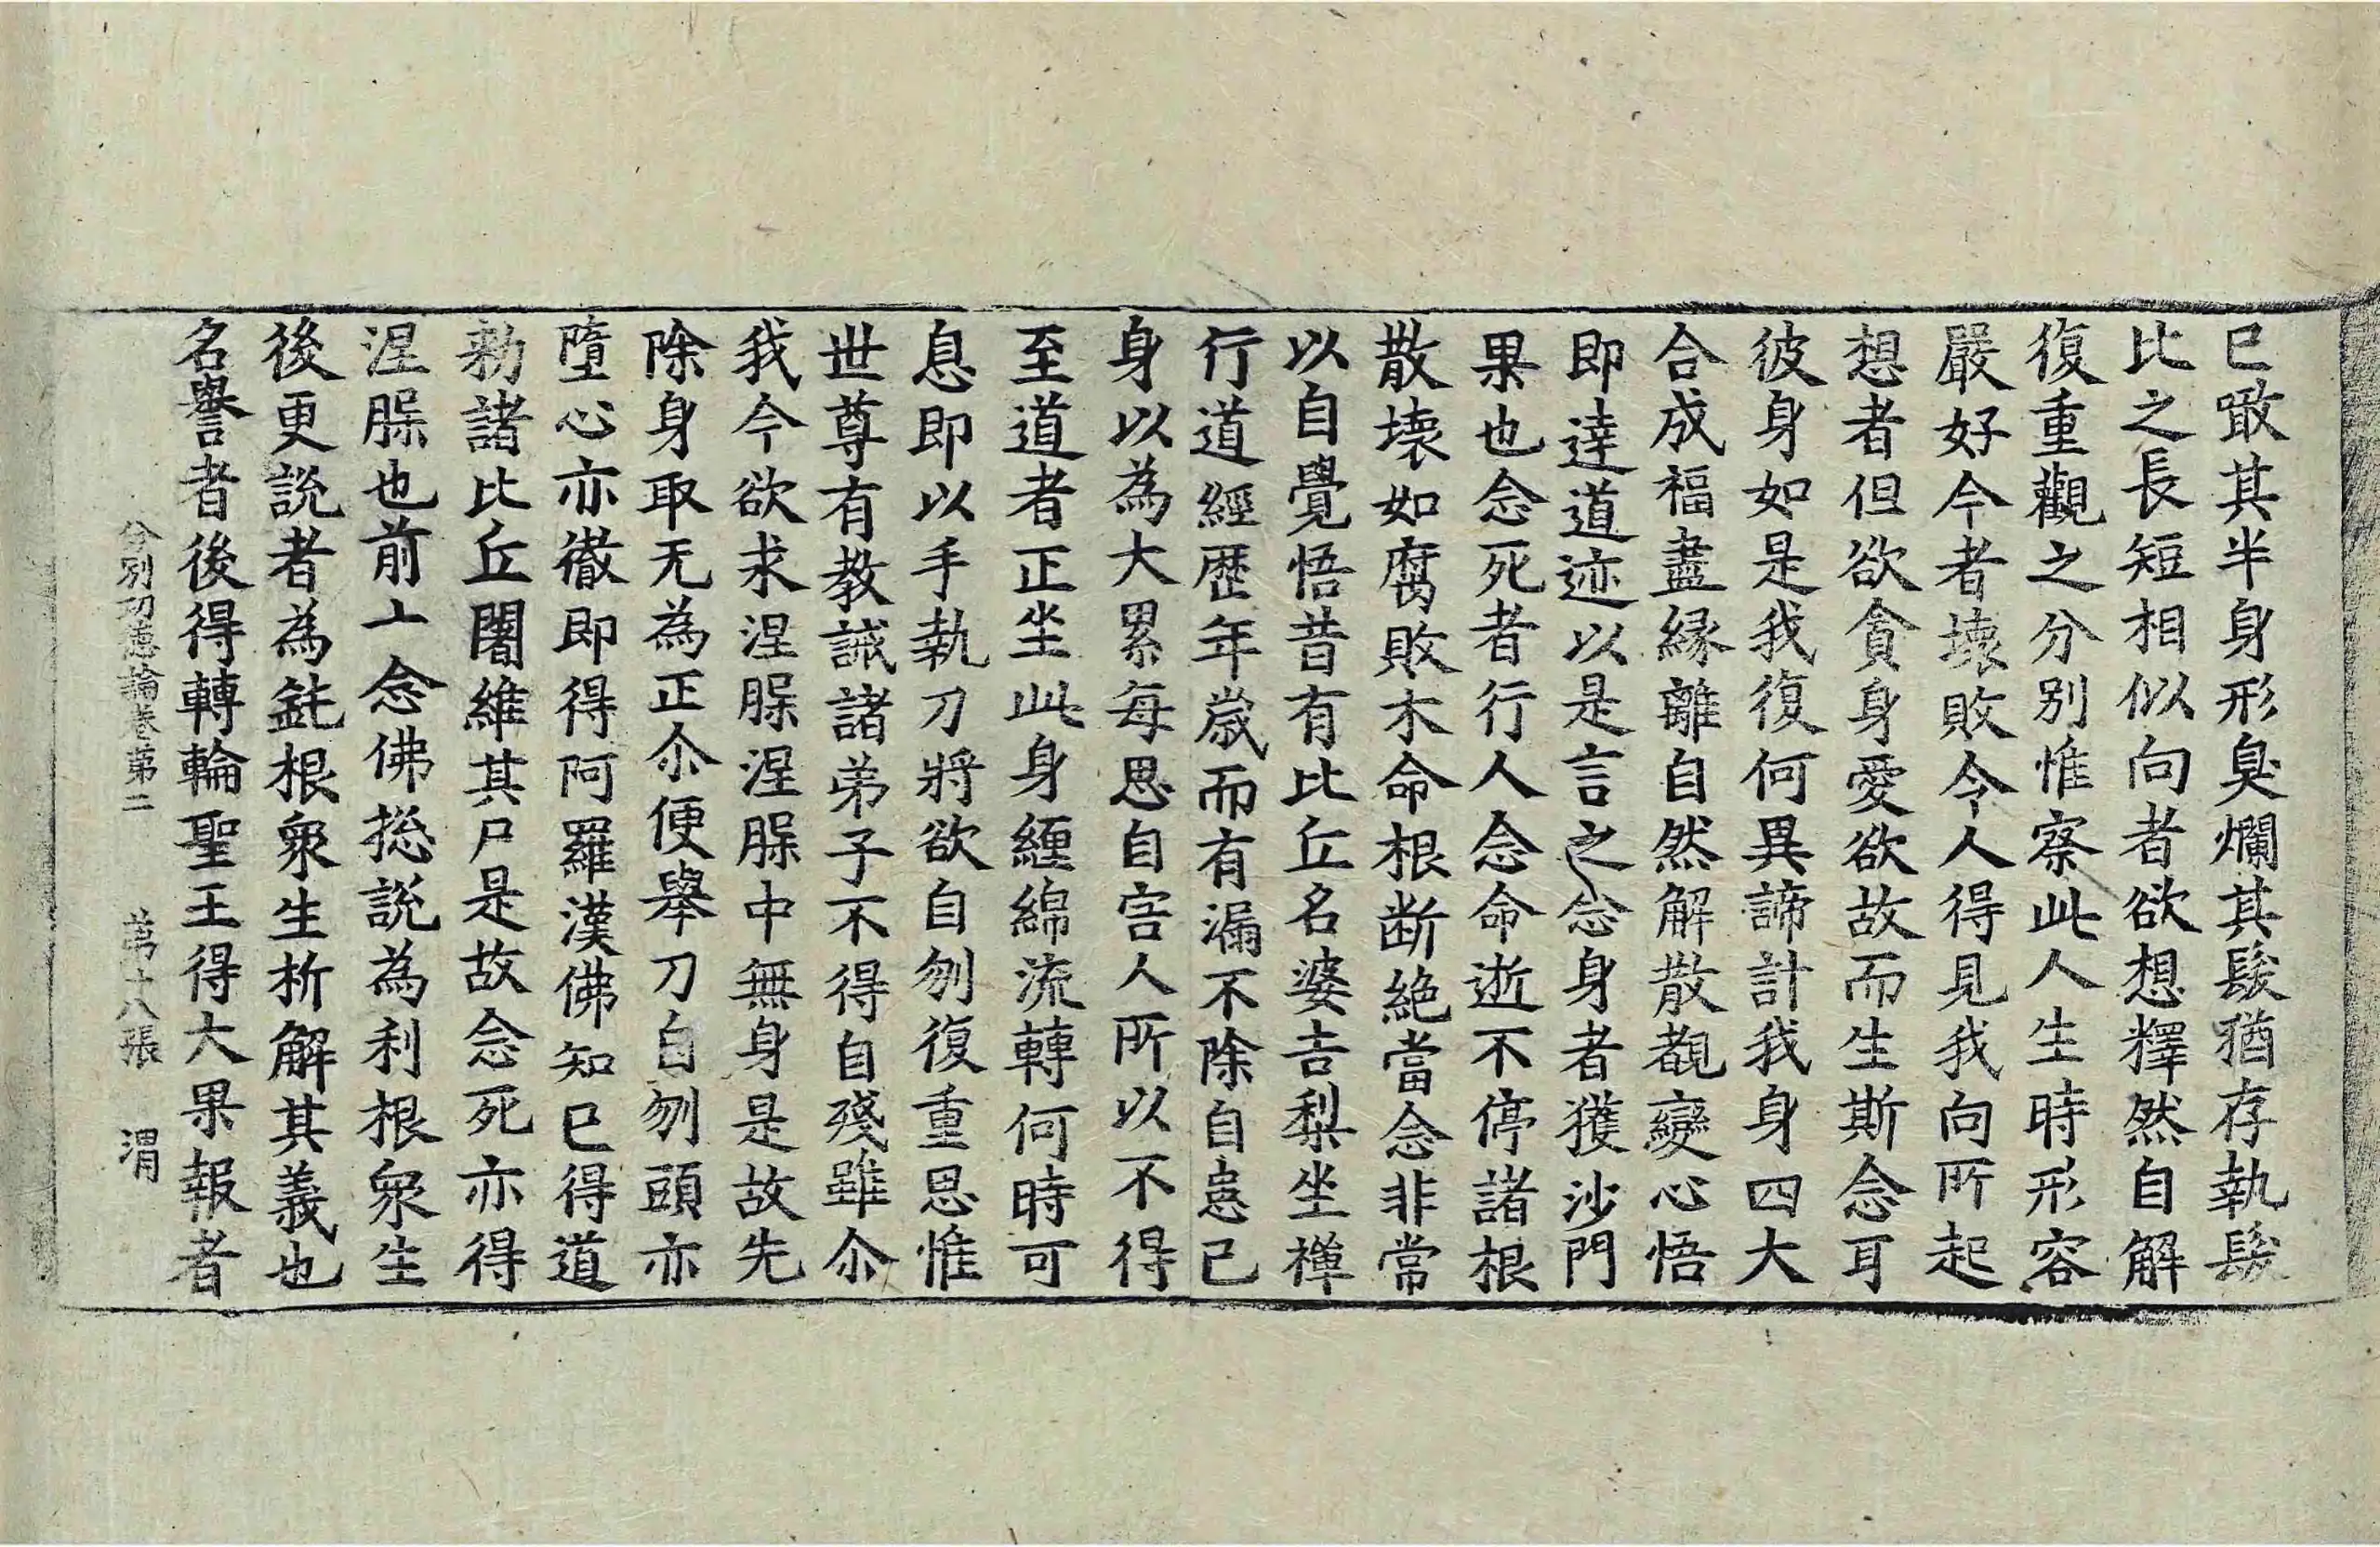 已噉其半身形臭爛其髮猶存執髮
比之長短相似向者欲想釋然自解
復重觀之分別惟察此人生時形容
嚴好今者壞敗令人得見我向所起
想者但欲貪身愛欲故而生斯念耳
彼身如是我復何異諦計我身四大
合成福盡緣離自然解散覩變心悟
即達道迹以是言之念身者獲沙門
果也念死者行人念命逝不停諸根
散壞如腐敗木命根断絶當念非常
以自覺悟昔有比丘名婆吉梨坐禪
行道經歷年歲而有漏不除自患己
身以為大累每思自害人所以不得
至道者正坐此身纏綿流轉何時可
息即以手執刀將欲自刎復重思惟
世尊有教誡諸弟子不得自殘雖尒
我今欲求涅槃涅槃中無身是故先
除身取无為正尒便舉刀自刎頭亦
墮心亦徹即得阿羅漢佛知已得道
勑諸比丘闍維其尸是故念死亦得
涅槃也前十念佛捴說為利根衆生
後更説者為鈍根衆生析解其義也
名譽者後得轉輪聖王得大果報者
分別功德論卷第二 第十八張 渭